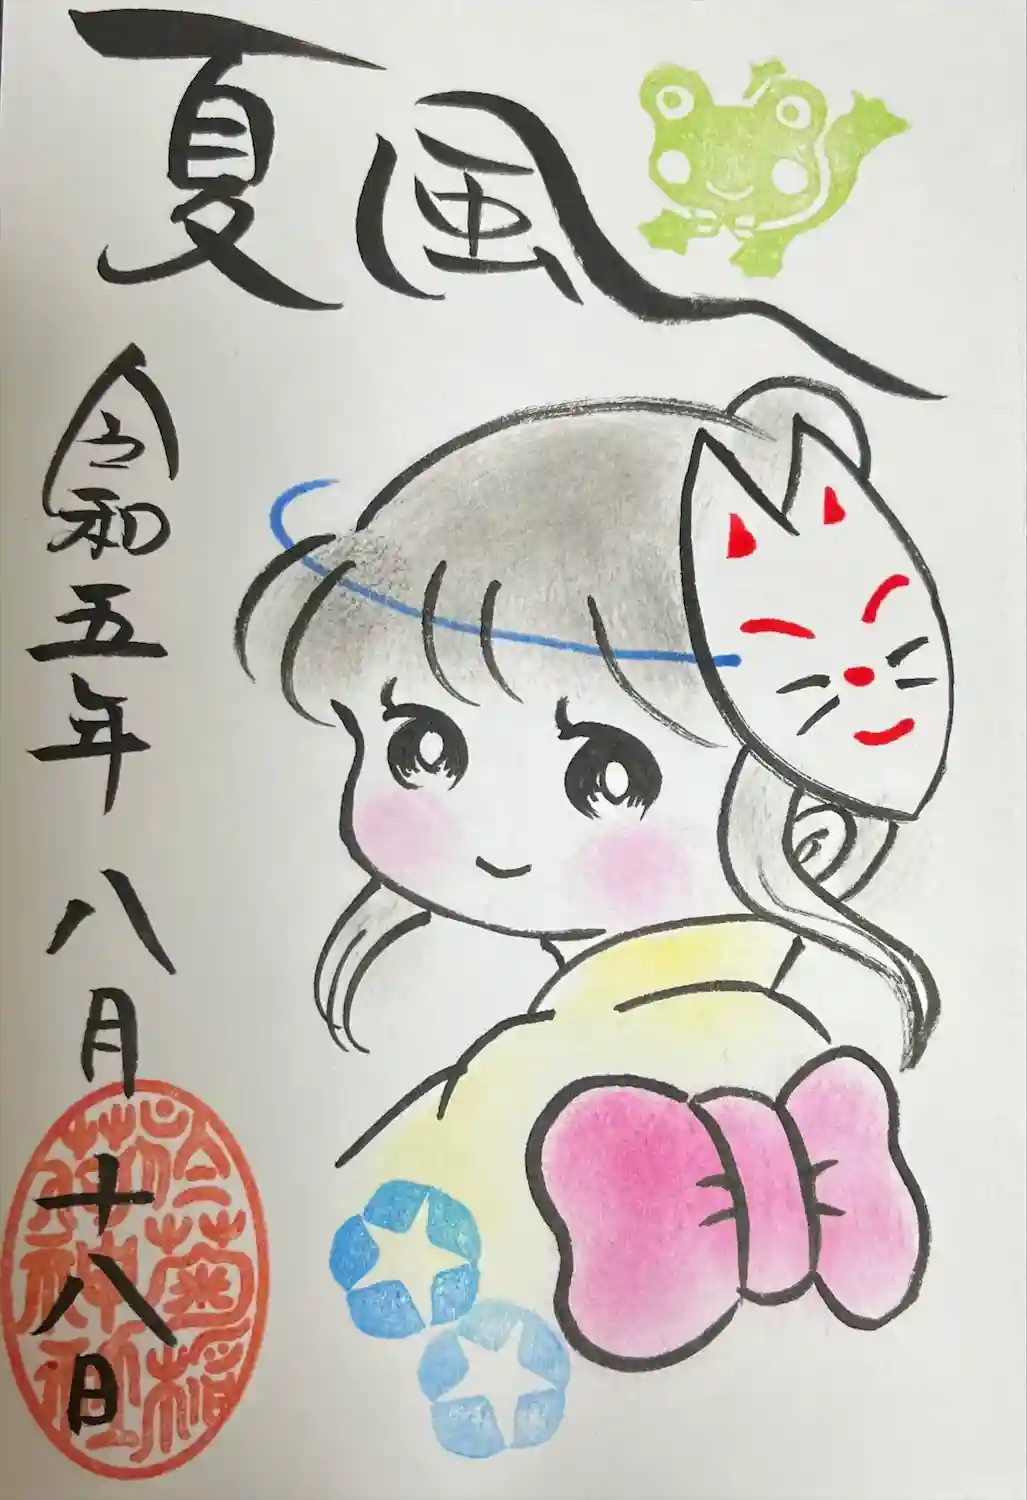 夏風
令和五年 八月十八日